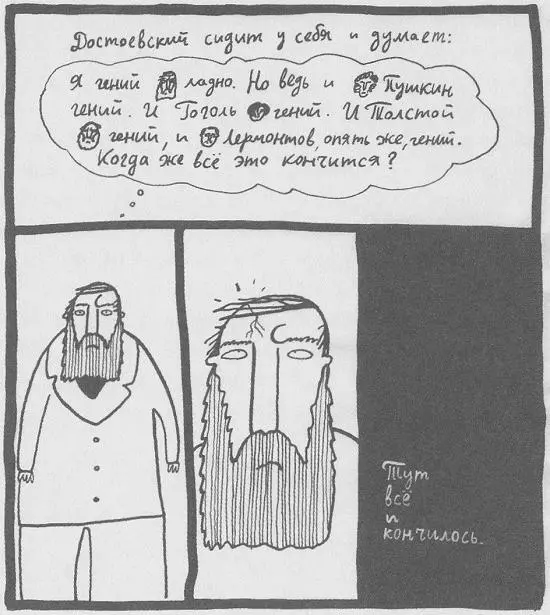 Достоевский сидит у себя и думает:
Я гений ладно. Но ведь и Пушкин
гений. И Гоголь гений. И Толстой
гений, и Лермонтов, опять же, гений.
Когда же всё это кончится?
Тут
всё
и
кончилось.